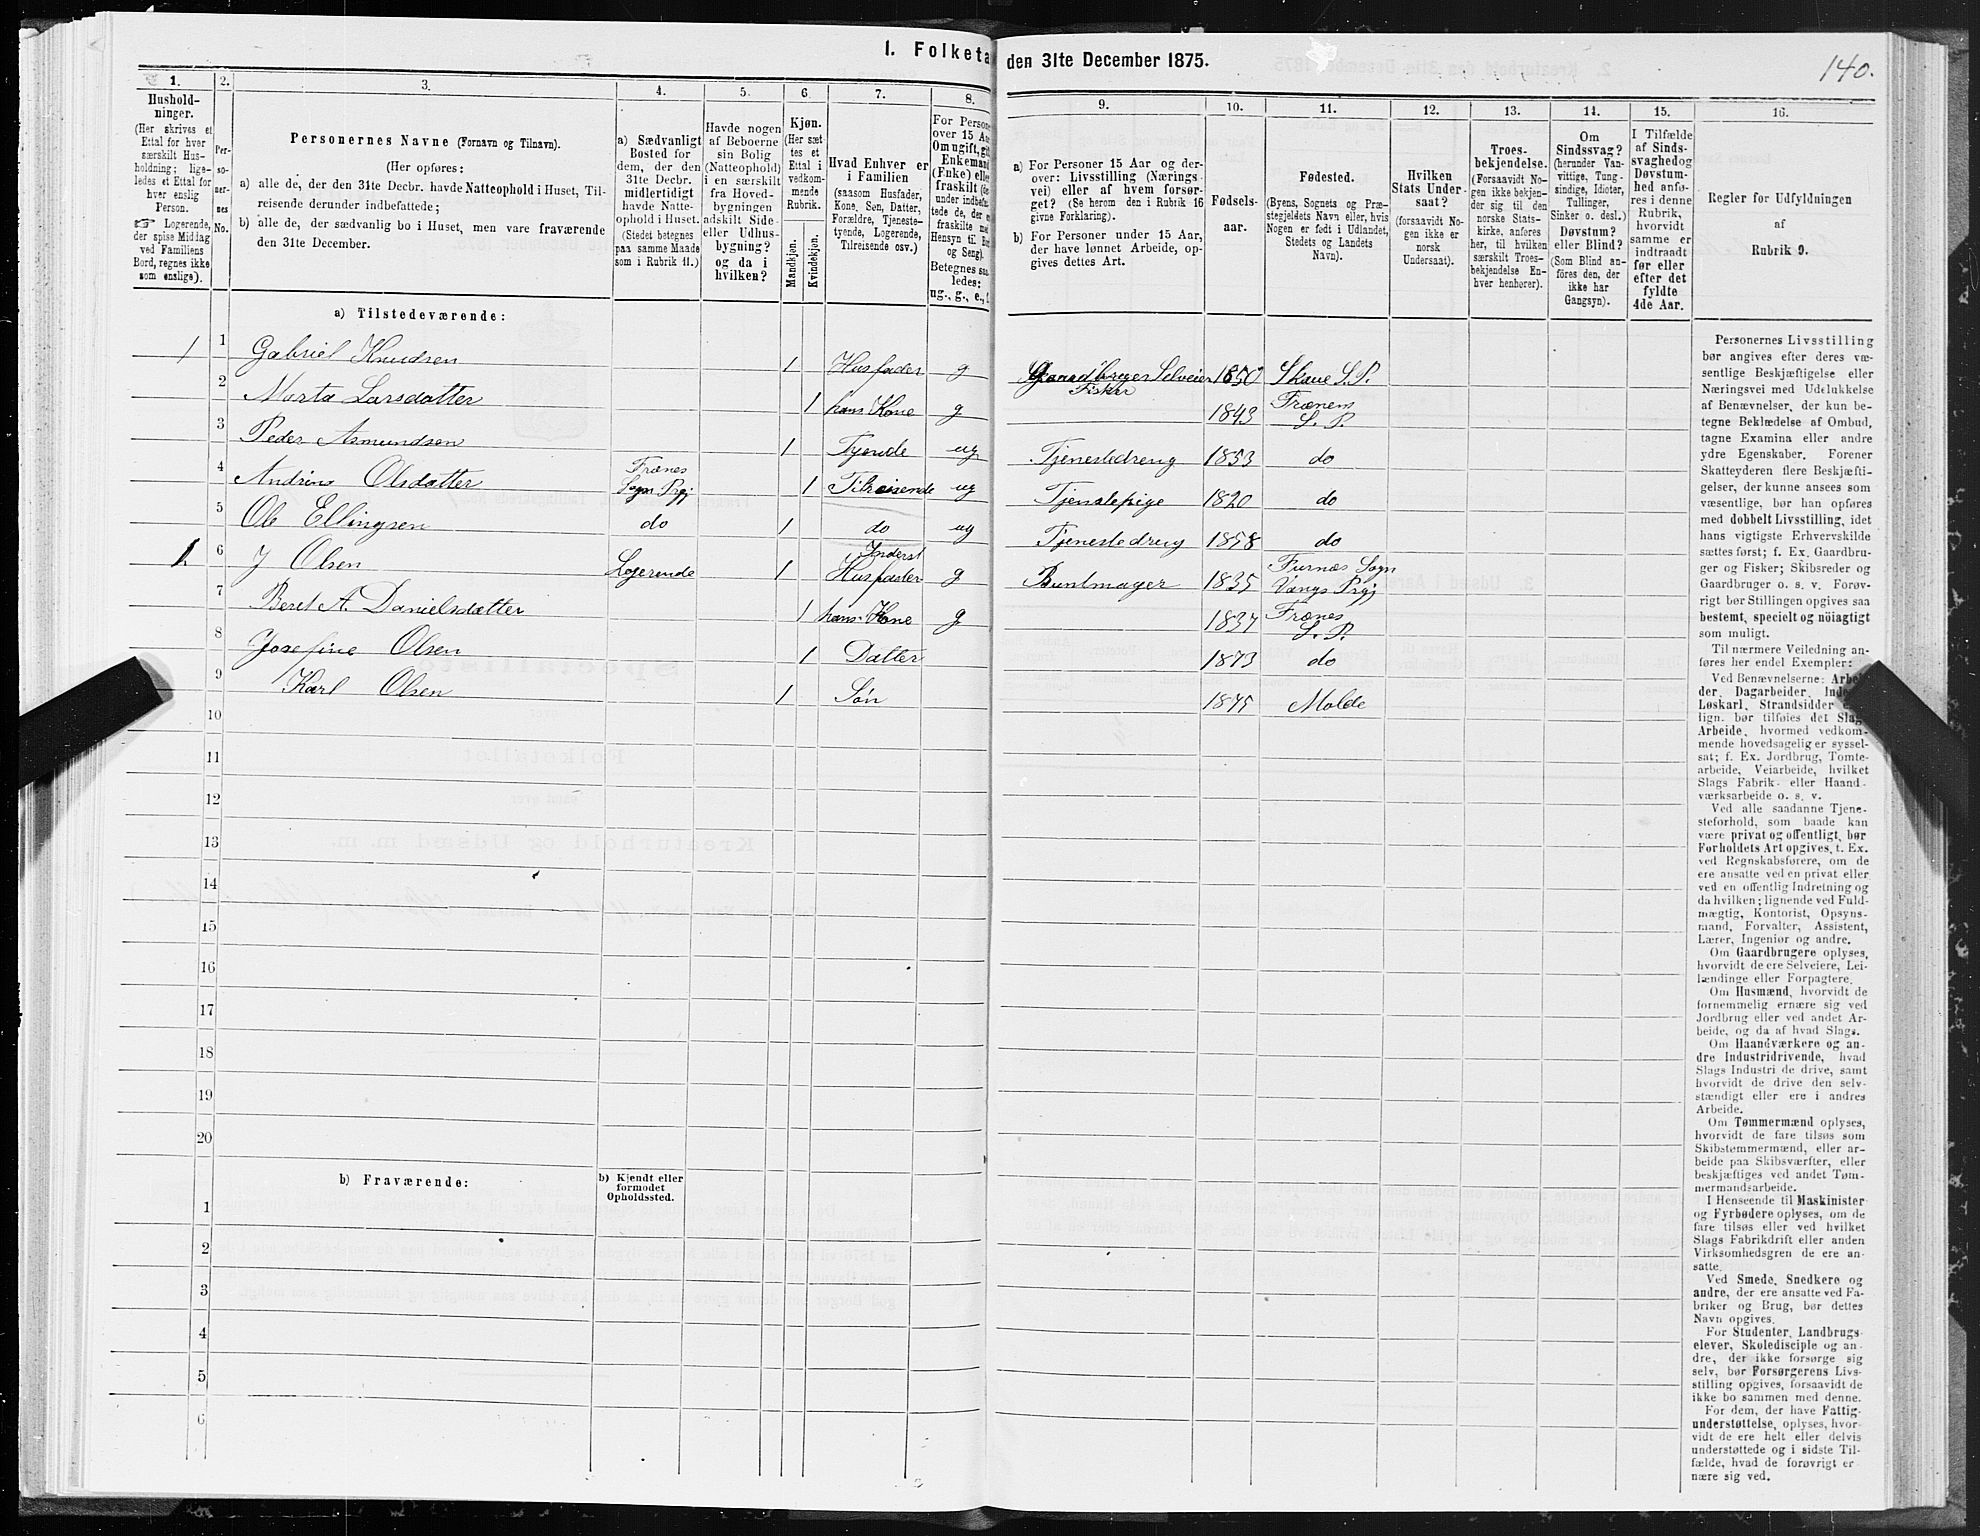 1. Folketa
den 31te December 1875.
140.
1. 2. 3. 4. 5. 6. 7. 8. 9. 10. 11. 12. 13. 14. 15. 16.
Hushold-
ninger.
(Her skrives et
Ettal for hver
særskilt Hus-
holdning; lige-
ledes et Ettal for
hver enslig
Person.
☞ Logerende,
der spise Middag
ved Familiens
Bord, regnes ikke
som enslige).
Per-
so-
ner-
nes
No.
Personernes Navne (Fornavn og Tilnavn).
(Her opføres:
a) alle de, der den 31te Decbr. havde Natteophold i Huset, Til-
reisende derunder indbefattede;
b) alle de, der sædvanlig bo i Huset, men vare fraværende
den 31te December.
a) Sædvanligt
Bosted for
dem, der den
31te Decbr.
midlertidigt
havde Natte-
ophold i Huset.
(Stedet betegnes
paa samme Maade
som i Rubrik 11.)
Havde nogen
af Beboerne
sin Bolig
(Natteophold)
i en særskilt
fra Hoved-
bygningen
adskilt Side-
eller Udhus-
bygning?
og da i
hvilken?
Kjøn.
(Her sæt-
tes et
Ettal i
vedkom-
mende
Rubrik.
Mandkjøn.
Kvindekjøn.
Hvad Enhver er
i Familien
(saasom Husfader,
Kone, Søn, Datter,
Forældre, Tjeneste-
tyende, Logerende,
Tilreisende osv.)
For Persone
over 15 Aa
Om ugift, git
Enkemand
(Enke) elle
fraskilt (de
under indbefa
tede de, der e
fraskilte me
Hensyn til Bo
og Seng).
Betegnes saa
ledes:
ug., g., e., f.
a) For Personer 15 Aar og der-
over: Livsstilling (Nærings-
vei) eller af hvem forsør-
get? (Se herom den i Rubrik 16
givne Forklaring).
b) For Personer under 15 Aar,
der have lønnet Arbeide, op-
gives dettes Art.
Fødsels-
aar.
Fødested.
(Byens, Sognets og Præ-
stegjeldets Navn eller, hvis
Nogen er født i Udlandet,
Stedets og Landets
Navn).
Hvilken
Stats Under-
saat?
(forsaavidt No-
gen ikke er
norsk
Undersaat).
Troes-
bekjendelse.
(Forsaavidt No-
gen ikke bekjen-
der sig til den
norske Stats-
kirke, anføres
her, til hvilken
særskilt Troes-
bekjendelse En-
hver henhører).
Om
Sindssvag?
(herunder Van-
vittige, Tung-
sindige, Idioter,
Tullinger,
Sinker o. desl.)
Døvstum?
eller Blind?
(Som Blind an-
føres den, der
ikke har
Gangsyn).
I Tilfælde
af Sinds-
svaghedog
Døvstum-
hed anfø-
res i denne
Rubrik,
hvorvidt
samme er
indtraadt
før eller
efter det
fyldte
4de Aar.
Regler for Udfyldningen
af
Rubrik 9.
a) Tilstedeværende:
1 1 Gabriel Knudsen 1 Husfader g Gaardbruger Selveier Fisker 1850 Skaue S. P.
2 Marta Larsdatter 1 hans Kone g 1843 Frænens S. P.
3 Peder Asmundsen 1 Tyende ug Tjenestedreng 1853 do
4 Andrine Olsdatter Frænes Sogn Prgj 1 Tilreisende ug Tjenestepige 1820 do
5 Ole Ellingsen do 1 do ug Tjenestedreng 1858 do
1 6 J Olsen Logerende 1 Inderst Husfader g Buntmager 1835 Furnæs Sogn Vangs Prgj
7 Beret A. Danielsdatter 1 hans Kone g 1837 Frænes S. P.
8 Josefine Olsen 1 Datter 1873 do
9 Karl Olsen 1 Søn 1875 Molde
10
11
12
13
14
15
16
17
18
19
20
b) Fraværende:
b) Kjendt eller
formodet
Opholdssted.
1
2
3
4
5
6
Personernes Livsstilling
bør angives efter deres væ-
sentlige Beskjæftigelse eller
Næringsvei med Udelukkelse
af Benævnelser, der kun be-
tegne Beklædelse af Ombud,
tagne Examina eller andre
ydre Egenskaber. Forener
Skatteyderen flere Beskjæfti-
gelser, der kunne ansees som
væsentlige, bør han opføres
med dobbelt Livsstilling, idet
hans vigtigste Erhvervskilde
sættes først; f. Ex. Gaardbru-
ger og Fisker; Skibsreder og
Gaardbruger o. s. v. Forøv-
rigt bør Stillingen opgives saa
bestemt, specielt og nøiagtigt
som muligt.
Til nærmere Veiledning an-
føres her endel Exempler:
Ved Benævnelserne: Arbei-
der, Dagarbeider, Inde
Løskarl, Strandsidder
lign. bør tilføies det Slag
Arbeide, hvormed vedkom-
mende hovedsagelig er syssel-
sat; f. Ex. Jordbrug, Tomte-
arbeide, Veiarbeide, hvilket
Slags Fabrik- eller Haand-
værksarbeide o. s. v.
Ved alle saadanne Tjene-
steforhold, som baade kan
være privat og offentligt, bør
Forholdets Art opgives, t. Ex.
ved Regnskabsførere, om de
ere ansatte ved en privat eller
ved en offentlig Indretning og
da hvilken; lignende ved Fuld-
mægtig, Kontorist, Opsyns-
mand, Forvalter, Assistent,
Lærer, Ingeniør og andre.
Om Gaardbrugere oplyses,
hvorvidt de ere Selveiere, Lei-
lændinge eller Forpagtere.
Om Husmænd, hvorvidt de
fornemmelig ernære sig ved
Jordbrug eller ved andet Ar-
beide, og da af hvad Slags.
Om Haandværkere og an-
dre Industridrivende, hvad
Slags Industri de drive, samt
hvorvidt de drive den selv-
stændigt eller ere i andres
Arbeide.
Om Tømmermænd oplyses,
hvorvidt de fare tilsøs som
Skibstømmermænd, eller ar-
beide paa Skibsværfter, eller
beskjæftiges ved andet Tøm-
mermandsarbeide.
I Henseende til Maskinister
og Fyrbødere oplyses, om de
fare tilsøs eller ved hvilket
Slags Fabrikdrift eller anden
Virksomhedsgren de ere an-
satte.
Ved Smede, Snedkere og
andre, der ere ansatte ved Fa-
briker og Brug, bør dettes
Navn opgives.
For Studenter, Landbrugs-
elever, Skoledisciple og an-
dre, der ikke forsørge sig
selv, bør Forsørgerens Livs-
stilling opgives, forsaavidt de
ikke bo sammen med denne.
For dem, der have Fattig-
understøttelse, oplyses, hvor-
vidt de ere helt eller delvis
understøttede og i sidste Til-
fælde, hvad de forøvrigt er-
nære sig ved.